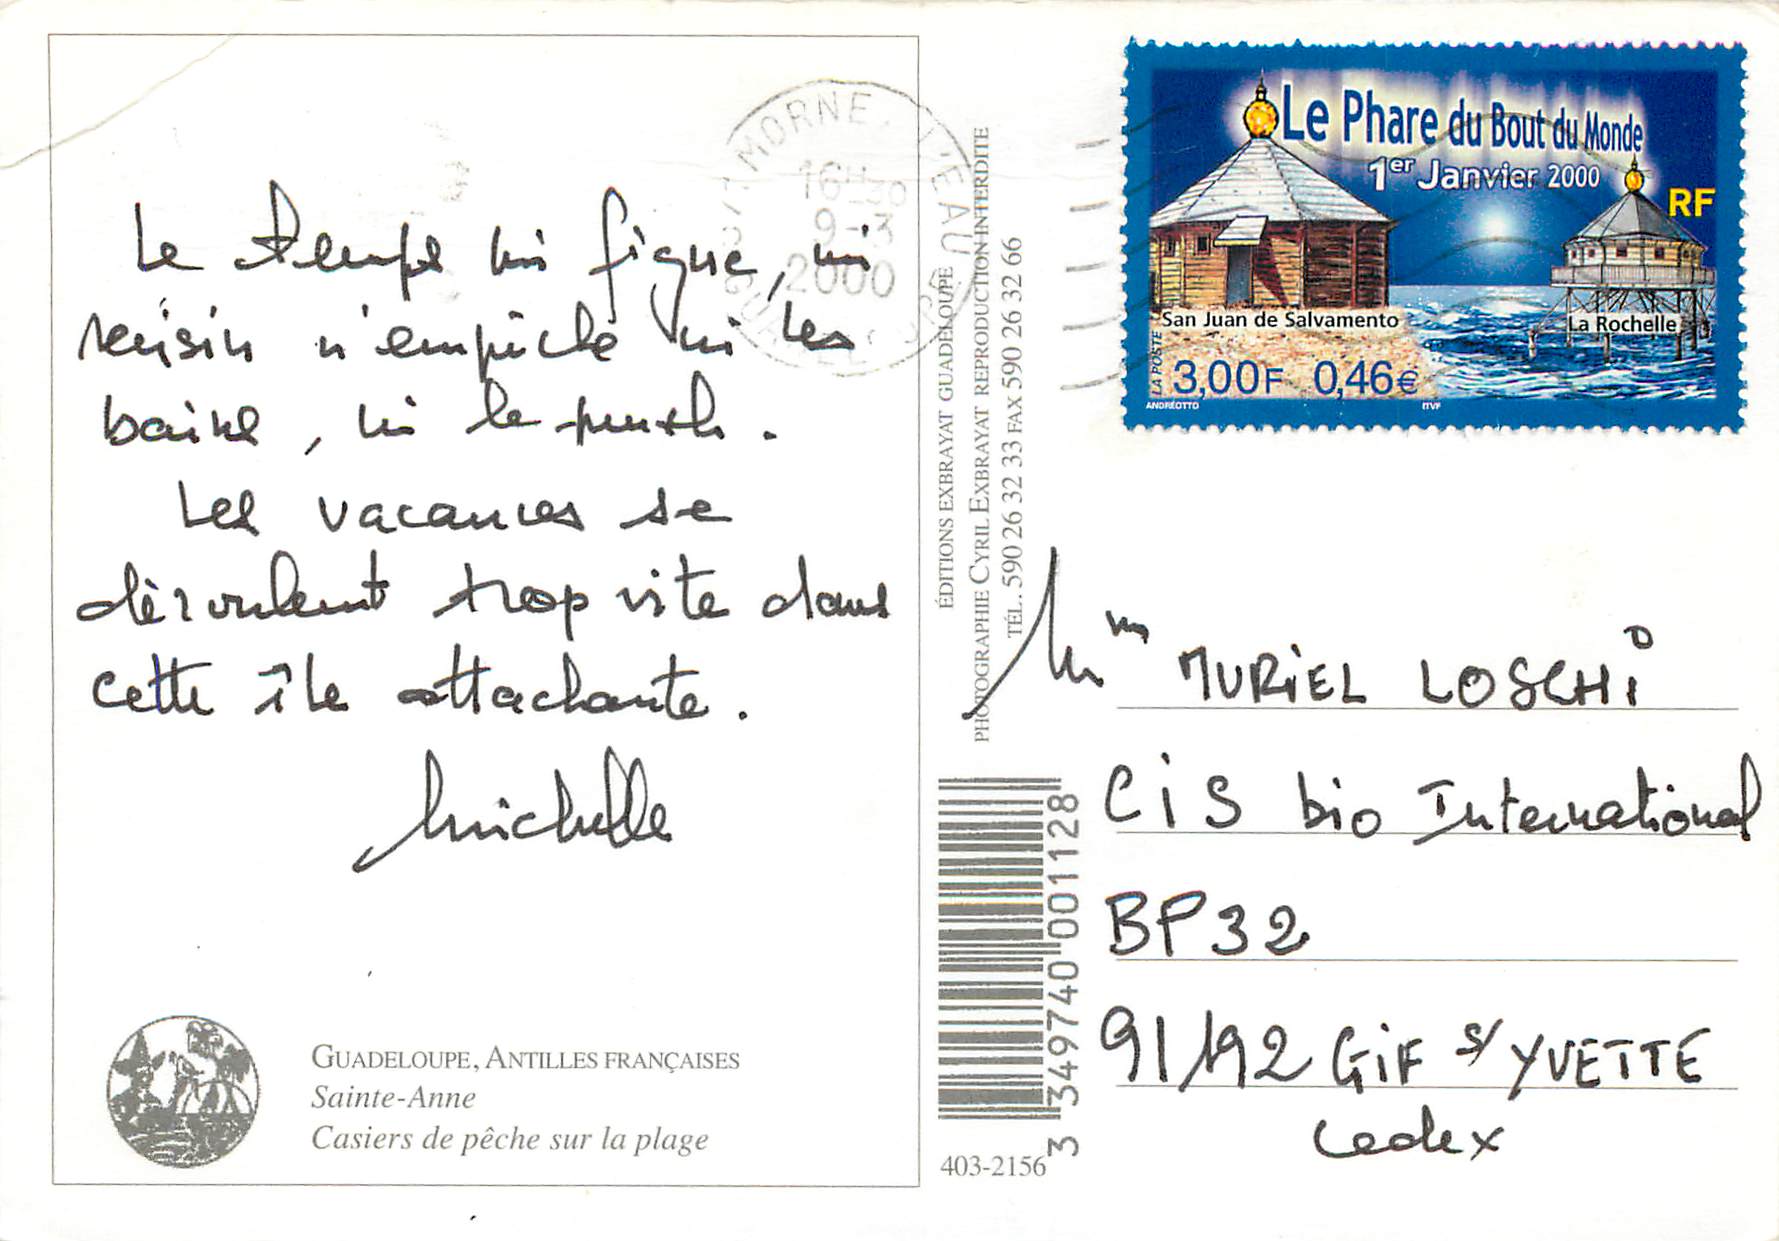 Le temps ni figue, ni
raisin n'empêche ni les
bains, ni le punch.
Les vacances se
déroulent trop vite dans
cette île attachante.
Michelle
GUADELOUPE, ANTILLES FRANÇAISES
Sainte-Anne
Casiers de pêche sur la plage
MORNE L'EAU
16H30
9-3
2000
GUADELOUPE
ÉDITIONS EXBRAYAT GUADELOUPE
PHOTOGRAPHIE CYRIL EXBRAYAT REPRODUCTION INTERDITE
TÉL. 590 26 32 33 FAX 590 26 32 66
3 349740 001128
403-2156
Le Phare du Bout du Monde
1er Janvier 2000
RF
San Juan de Salvamento
La Rochelle
LA POSTE
3,00F 0,46€
ANDRÉOTTO
ITVF
MURiEL LOSCHi
CiS bio International
BP32
91192 GiF s/ YVETTE
Cedex